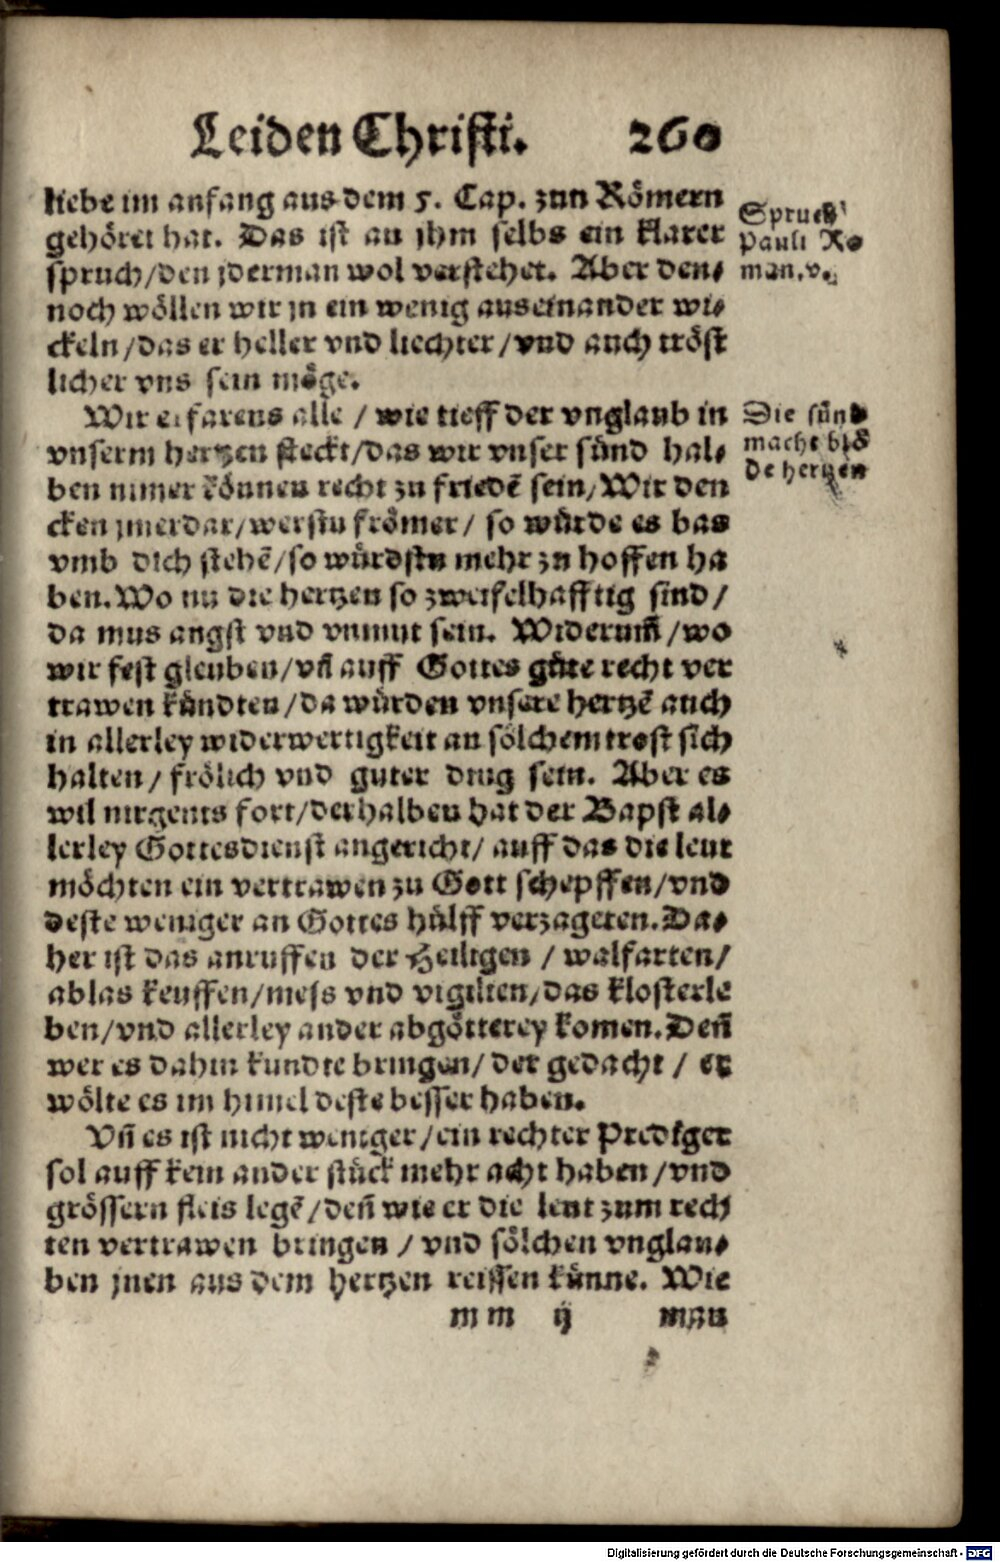 Leiden Christi. 260
liebe im anfang aus dem 5. Cap. zun Römern
gehöret hat. Das ist an jhm selbs ein klarer
spruch/den jderman wol verstehet. Aber den⸗
noch wöllen wir jn ein wenig auseinander wi⸗
ckeln/das er heller vnd liechter/vnd auch tröst
licher vns sein möge.
Spruch
Pauli Ro
man. v.
Wir erfarens alle / wie tieff der vnglaub in
vnserm hertzen steckt/das wir vnser sünd hal⸗
ben nimer können recht zu friedẽ sein/Wir den
cken jmerdar/werstu frömer/ so würde es bas
vmb dich stehẽ/so würdstu mehr zu hoffen ha
ben. Wo nu die hertzen so zweifelhafftig sind/
da mus angst vnd vnmut sein. Widerum̃/wo
wir fest gleuben/vñ auff Gottes güte recht ver
trawen kündten/da würden vnsere hertzẽ auch
in allerley widerwertigkeit an sölchem trost sich
halten/ frölich vnd guter ding sein. Aber es
wil nirgents fort/derhalben hat der Bapst al⸗
lerley Gottesdienst angericht/ auff das die leut
möchten ein vertrawen zu Gott schepffen/vnd
deste weniger an Gottes hülff verzageten. Da⸗
her ist das anruffen der Heiligen / walfarten/
ablas keuffen/mess vnd vigilien/das klosterle
ben/vnd allerley ander abgötterey komen. Deñ
wer es dahin kundte bringen/ der gedacht / er
wölte es im himel deste besser haben.
Die sünd
macht blö
de hertzen
Vñ es ist nicht weniger/ein rechter Prediger
sol auff kein ander stück mehr acht haben/vnd
grössern fleis legẽ/deñ wie er die leut zum rech
ten vertrawen bringen / vnd sölchen vnglau⸗
ben jnen aus dem hertzen reissen künne. Wie
m m ij man
Digitalisierung gefördert durch die Deutsche Forschungsgemeinschaft - DFG